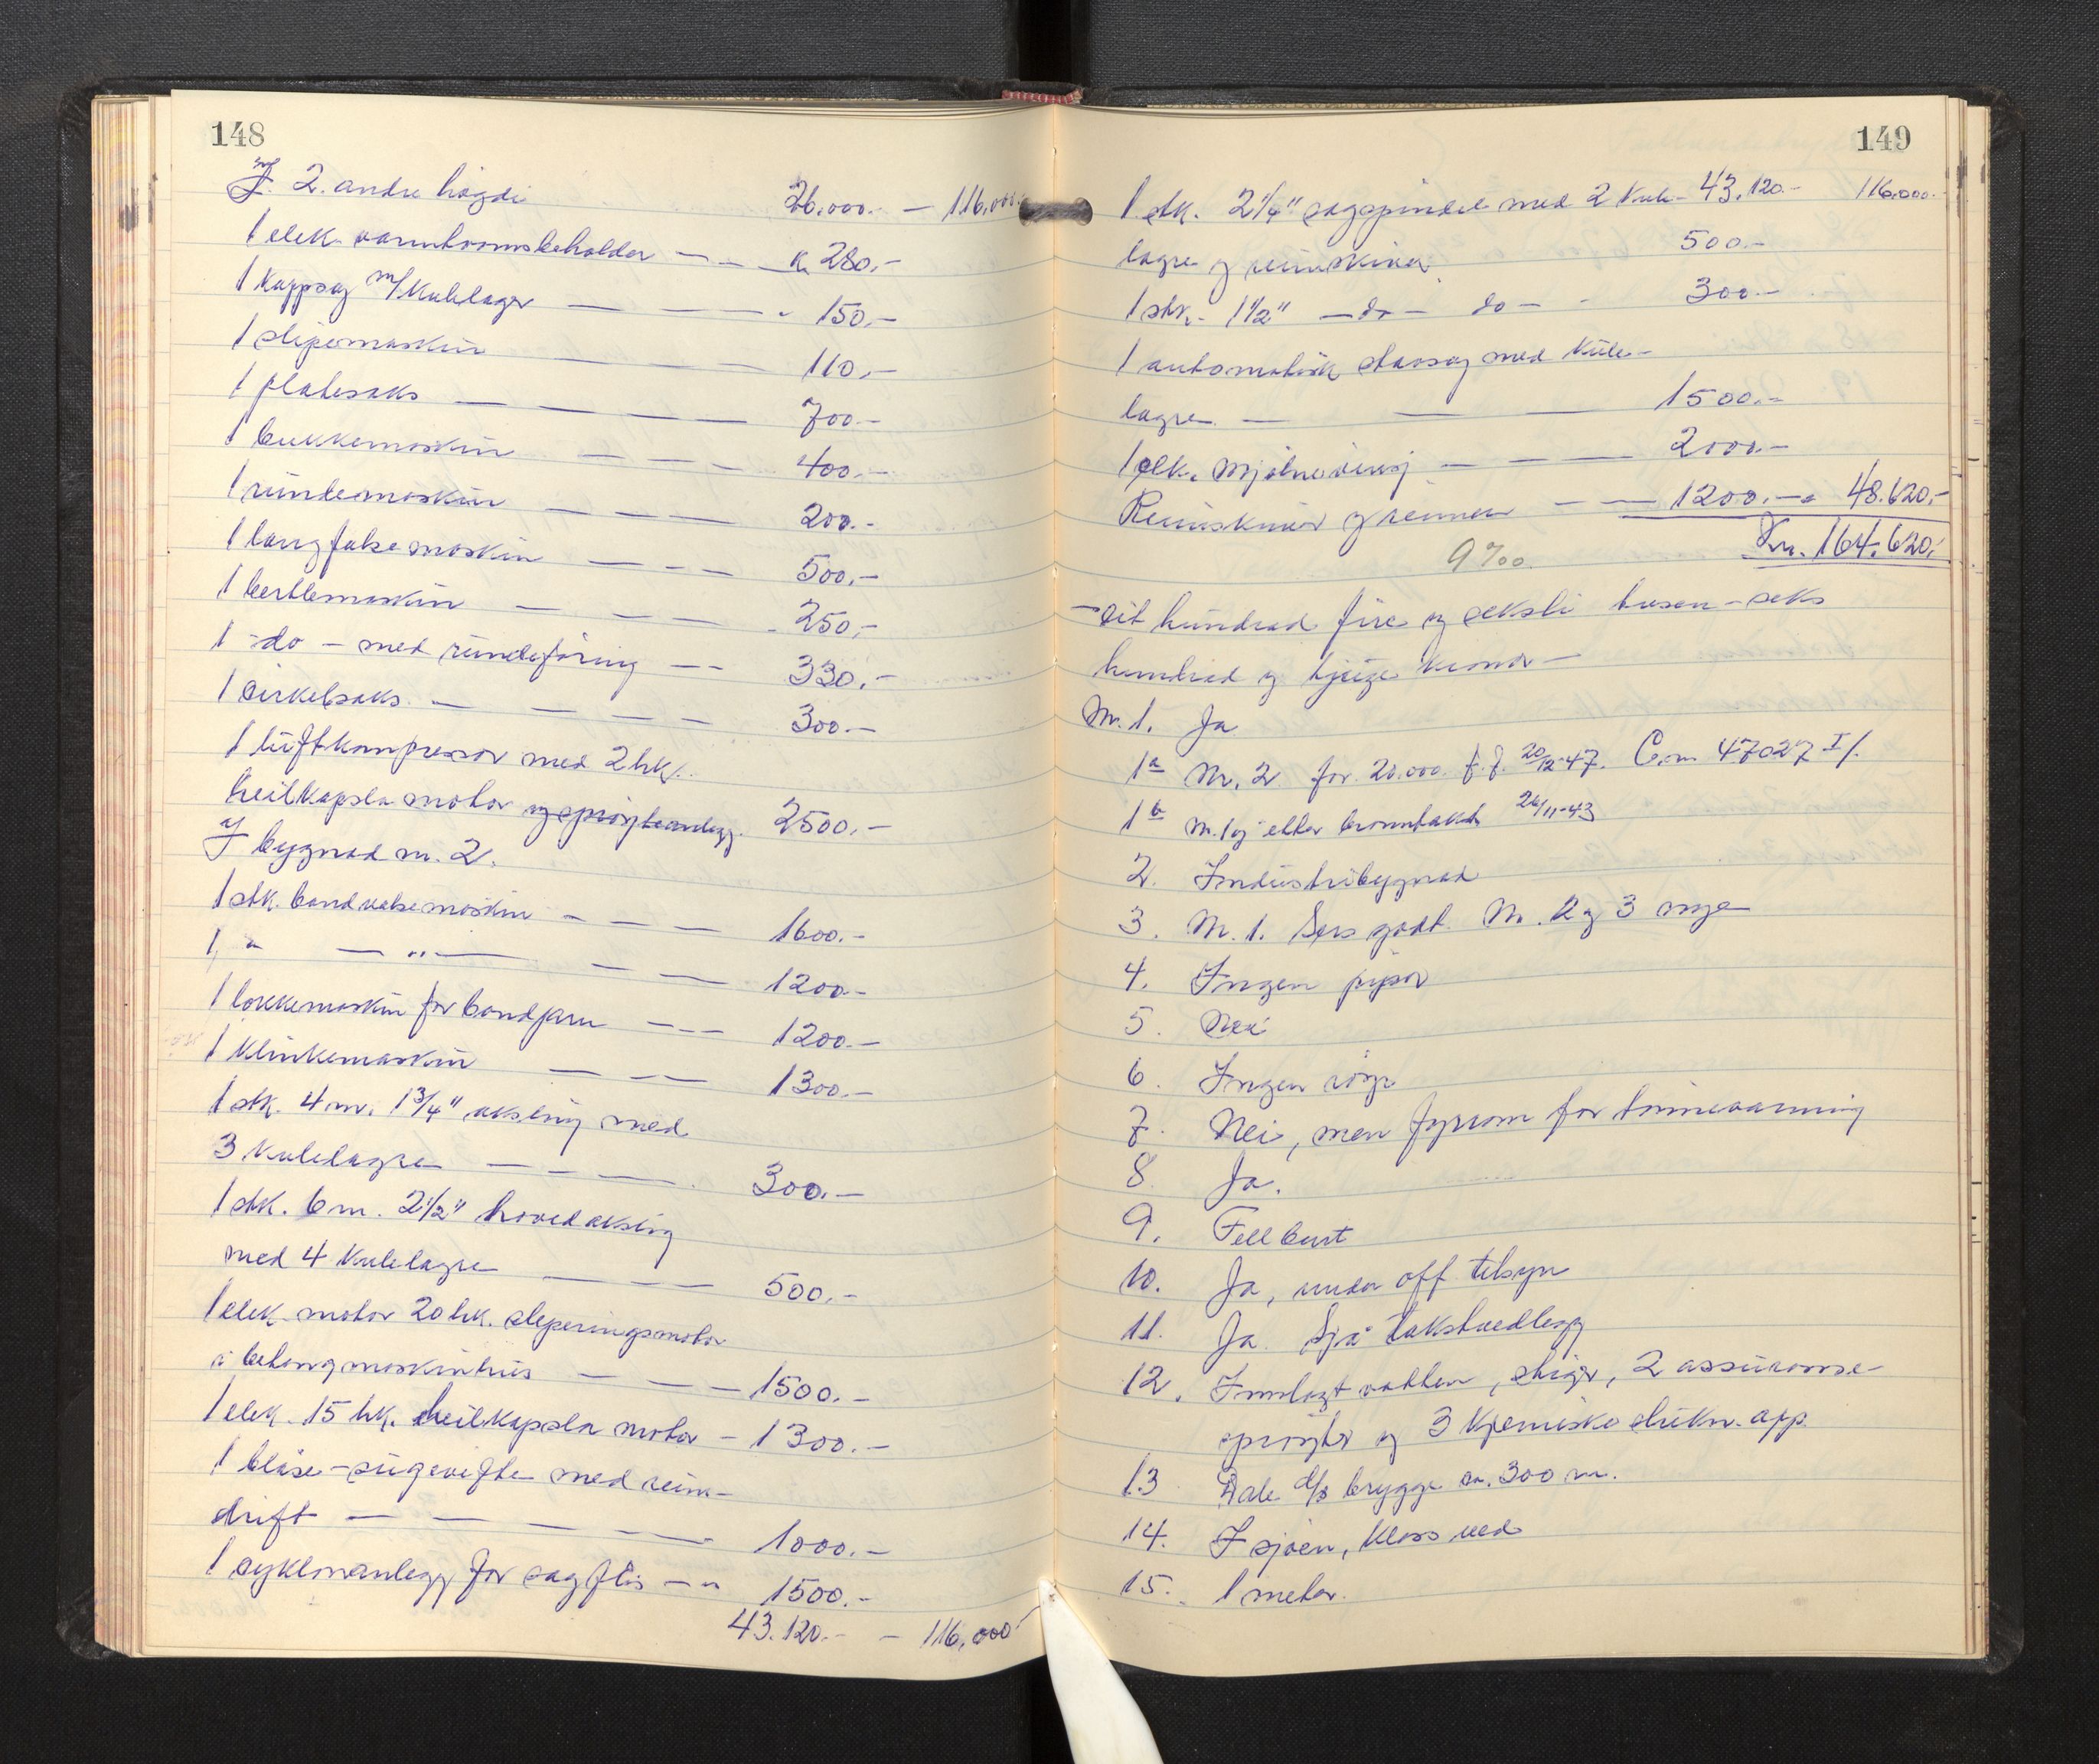 148
I 2. andre høgdi 26.000.- — 116,000.-
1 elek. varmtvannsbeholder — - — kr. 280.-
1 kappsag m/ kulelager — — — - 150.-
1 slipemaskin — — 110.-
1 platesaks — — — — 700.-
1 bukkemaskin — — — 400.-
1 rundemaskin — — — 200.-
1 langfalsemaskin — - — 500.-
1 bertlemaskin — — — - 250.-
1 -do- med rundeføring — - 330.-
1 sirkelsaks. — — — — 300.-
1 luftkompressor med 2 hk.
heilkapsla motor og sprøyteanlegg. 2500.-
I bygnad nr. 2.
1 stk. bandvalsemaskin — — — 1600.-
1 " — " — — — 1200.-
1 lokkemaskin for bandjarn — - — 1200.-
1 klinkemaskin — — — 1300.-
1 stk. 4 m. 1 3/4" aksling med
3 kulelagre — — — — 300.-
1 stk. 6 m. 2 1/2" hovedaksling
med 4 kulelagre — — — 500.-
1 elek. motor 20 hk. sleperingsmotor
i betong maskinhus — — — 1500.-
1 elek. 15 hk. heilkapsla motor — 1300.-
1 blåse-sugevifte med reim-
drift — — — — — 1000.-
1 syklonanlegg for sagflis — " 1500.-
43.120.- — 116,000.-
149
1 stk. 2 1/4" sagspindel med 2 kule- 43.120.- 116,000.-
lagre og reimskiver 500.-
1 stk. 1 1/2" — do — do — - 300.-
1 automatisk stavsag med kule-
lagre. — — — 1500.-
1 elk. Mjølnerving — — — 2000.-
Reimskiver og reimer — — 1200.- - 48.620.-
Kr. 164.620.-
9 ‰.
- eit hundrad fire og seksti tusen - seks
hundrad og tjuge kroner -
Nr. 1. Ja
1a Nr. 2 for 20.000 f.f. 20/12-47. C.nr. 47027 I/.
1b Nr. 1 og etter branntakst 26/11-43
2. Industribygnad
3. Nr. 1. Sers godt. Nr. 2 og 3 nye
4. Ingen piper
5. Nei
6. Ingen røyr
7. Nei, men fyrrom for tønnevarming
8. Ja.
9. Fell burt
10. Ja, under off. tilsyn
11. Ja. Sjå takstvedlegg
12. Innlagt vatten, stiger, 2 assuranse-
sprøyter og 3 kjemiske slukn. app.
13 Dale d/s brygge ca. 300 m.
14. I sjøen, kloss ved
15. 1 meter.